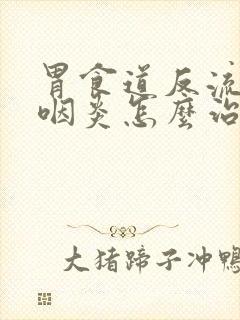 胃食道反流
咽炎怎麼治
大猪蹄子冲鸭